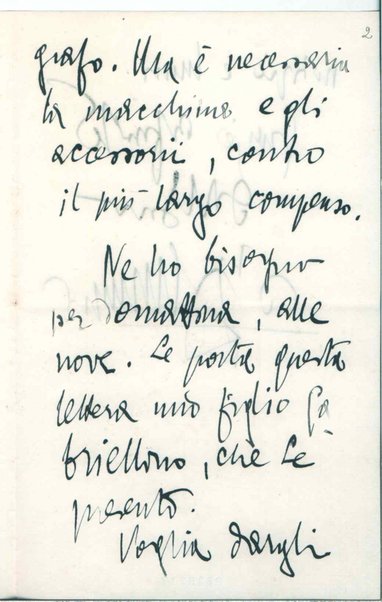 2
grafo. Ma è necessaria
la macchina e gli
accessorii, contro
il più largo compenso.
Ne ho bisogno
per domattina, alle
nove. Le porta questa
lettera mio figlio Ga
briellino, che Le
presento.
Voglia dargli